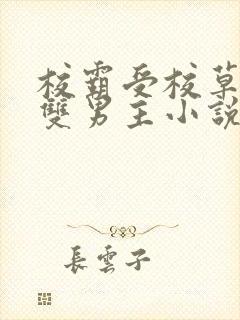 校霸受校草
雙男主小說
長雲子